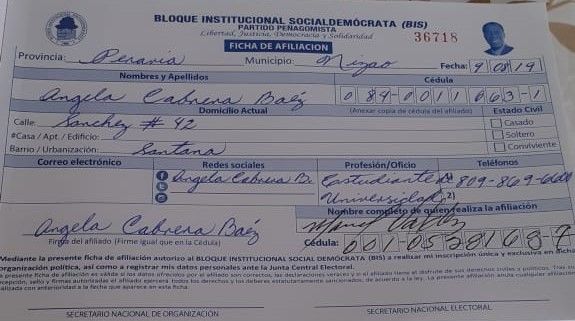 BLOQUE INSTITUCIONAL SOCIALDEMÓCRATA (BIS)
PARTIDO PEÑAGOMISTA
Libertad, Justicia, Democracia y Solidaridad
36718
FICHA DE AFILIACION
Provincia: Peravia Municipio: Nizao Fecha: 9/08/19
Nombres y Apellidos Cédula
Angela Cabrera Baéz 084-0011063-1
Domicilio Actual (Anexar copia de cédula del afiliado) Estado Civil
Calle: Sanchez # 42 Casado
#Casa / Apt. / Edificio: Soltero
Barrio / Urbanización: Santana Conviviente
Correo electrónico Redes sociales Profesión/Oficio Teléfonos
Angela Cabrera B. Estudiante 1) 809-869-
Universidad 2)
Nombre completo de quien realiza la afiliación
Angela Cabrera Baéz
Firma del afiliado (Firme igual que en la Cédula) Cédula: 001-0528168-7
Mediante la presente ficha de afiliación autorizo al BLOQUE INSTITUCIONAL SOCIAL DEMÓCRATA (BIS) a realizar mi inscripción única y exclusiva en
organización política, así como a registrar mis datos personales ante la Junta Central Electoral.
SECRETARIO NACIONAL DE ORGANIZACIÓN SECRETARIO NACIONAL ELECTORAL